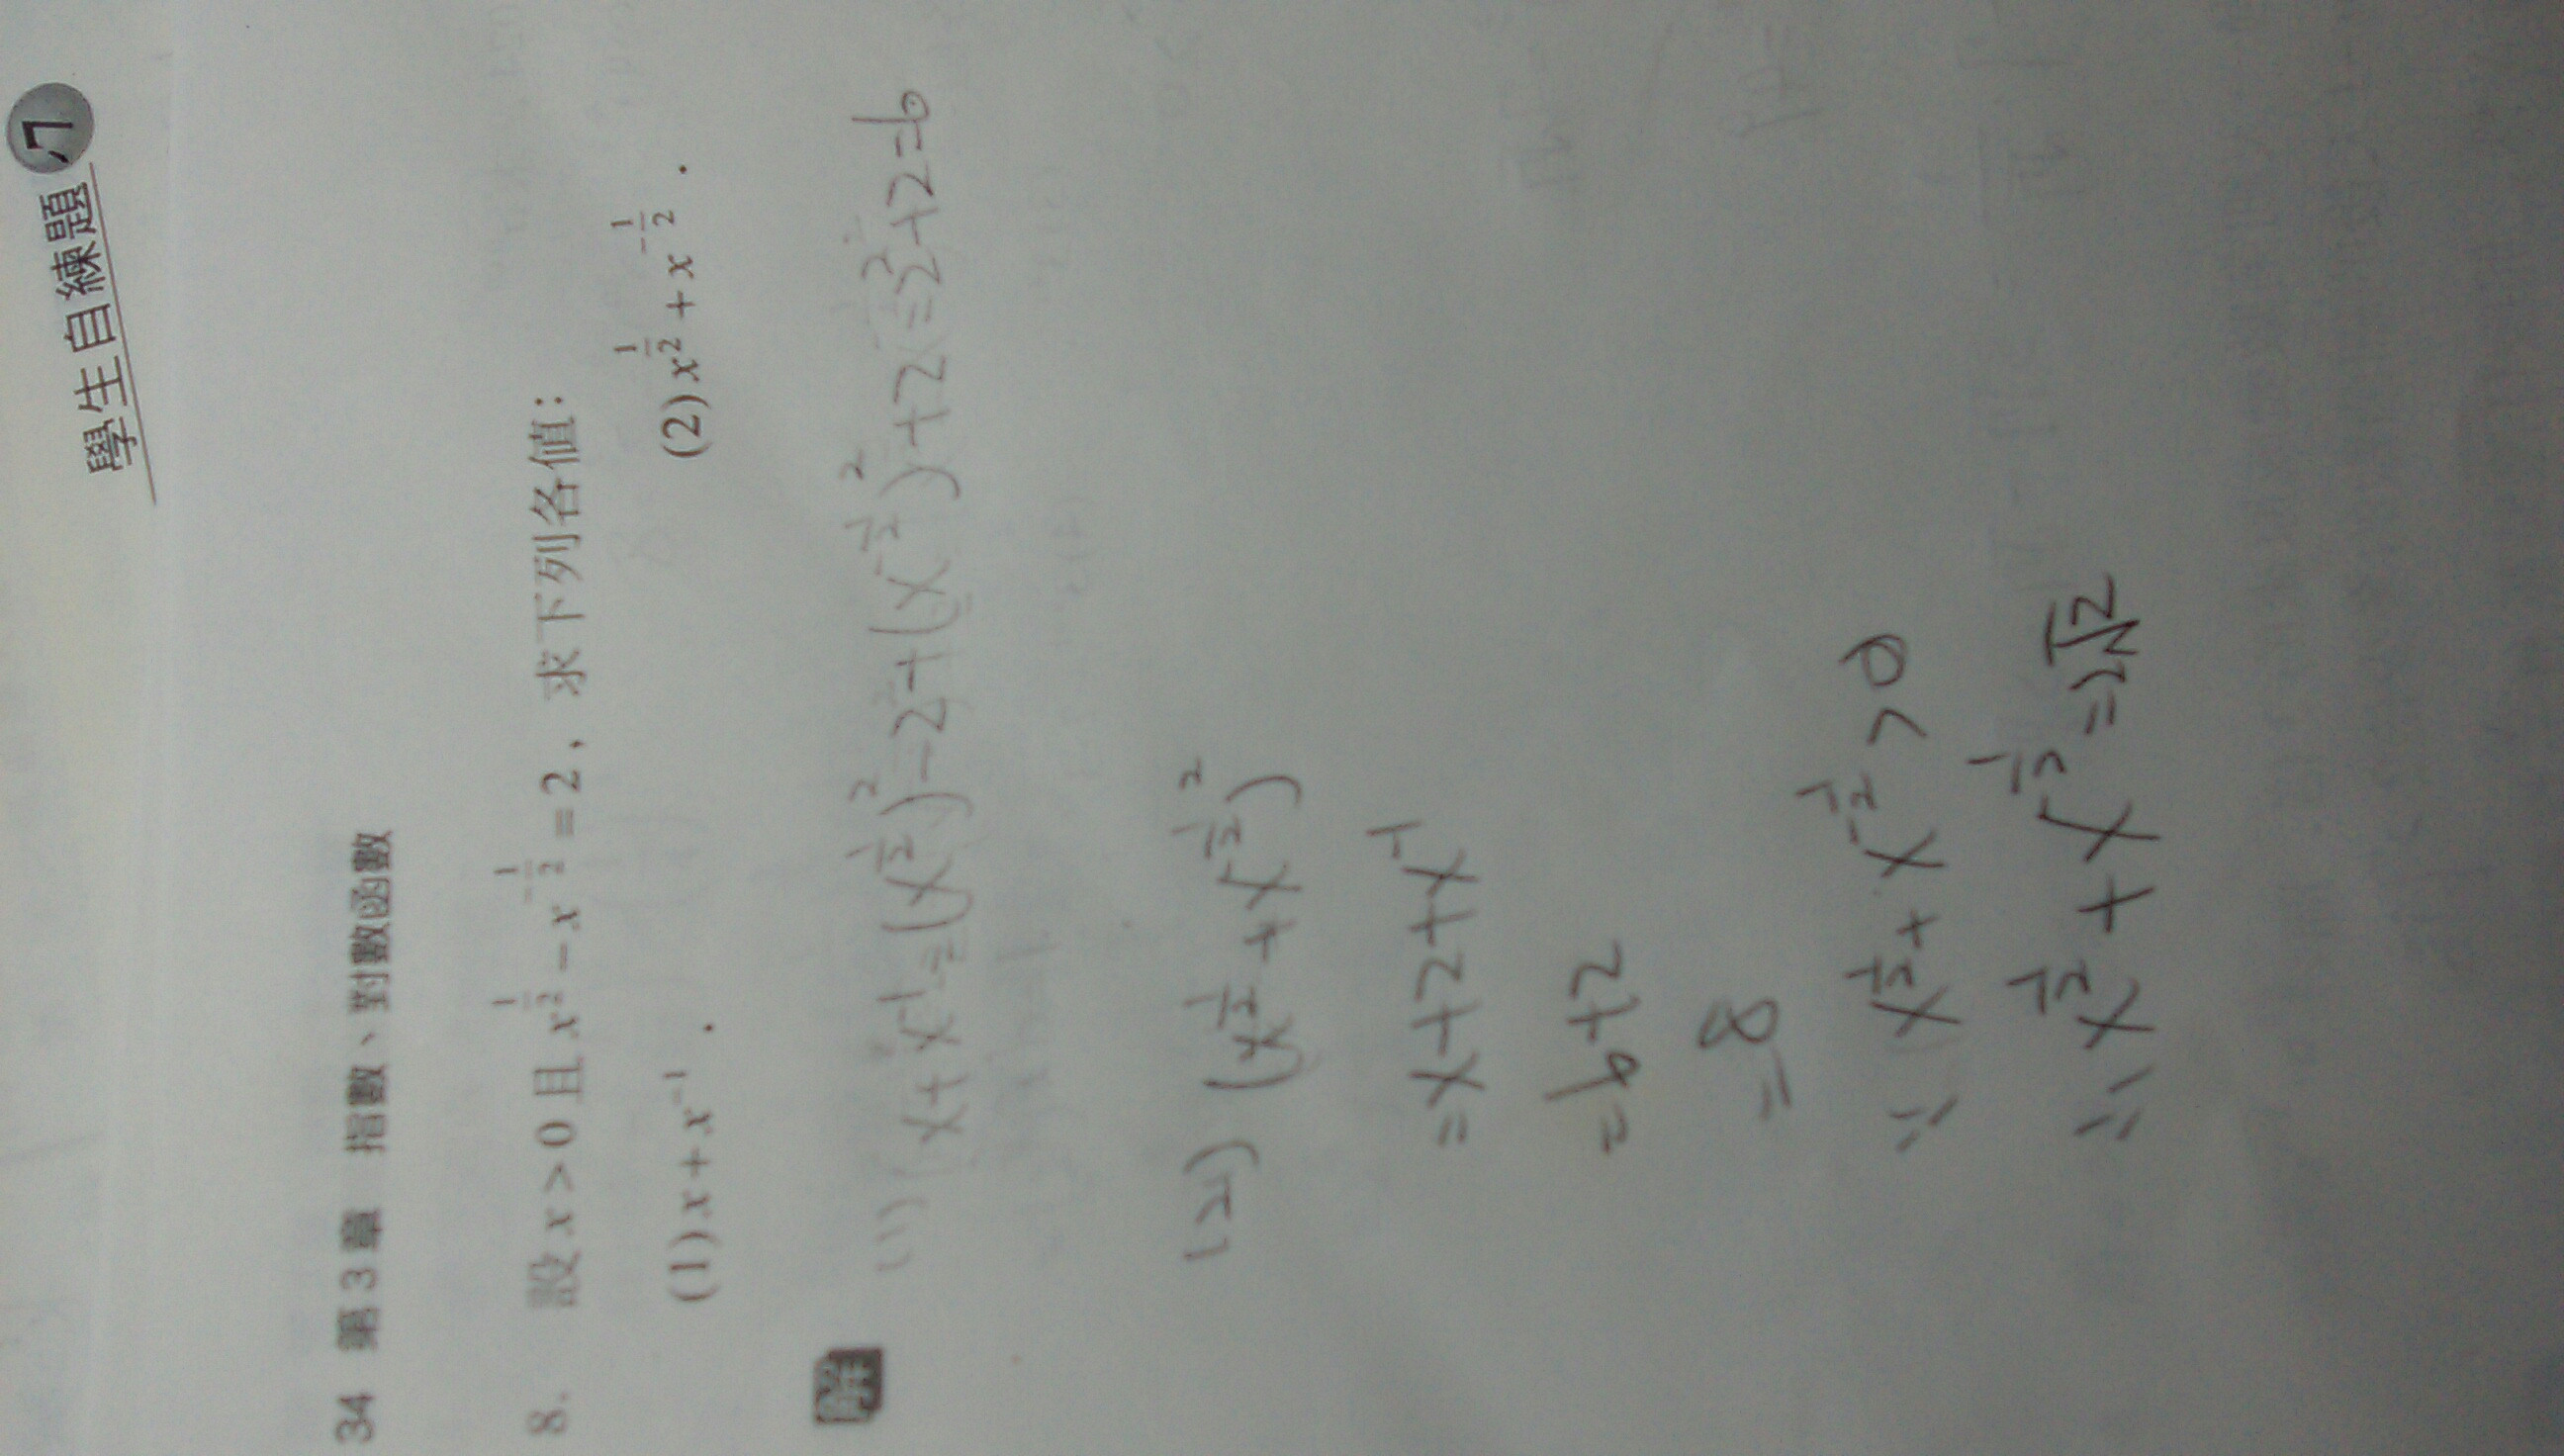 學生自練題 7
34 第3章 指數、對數函數
8. 設 x > 0 且 x^{1/2} - x^{-1/2} = 2，求下列各值：
(1) x + x^{-1}． (2) x^{1/2} + x^{-1/2}．
解
(1) x + x^{-1} = (x^{1/2})^2 - 2 + (x^{-1/2})^2 + 2 = 2^2 + 2 = 6
(2) (x^{1/2} + x^{-1/2})^2
= x + 2 + x^{-1}
= 6 + 2
= 8
∵ x^{1/2} + x^{-1/2} > 0
∴ x^{1/2} + x^{-1/2} = 2√2